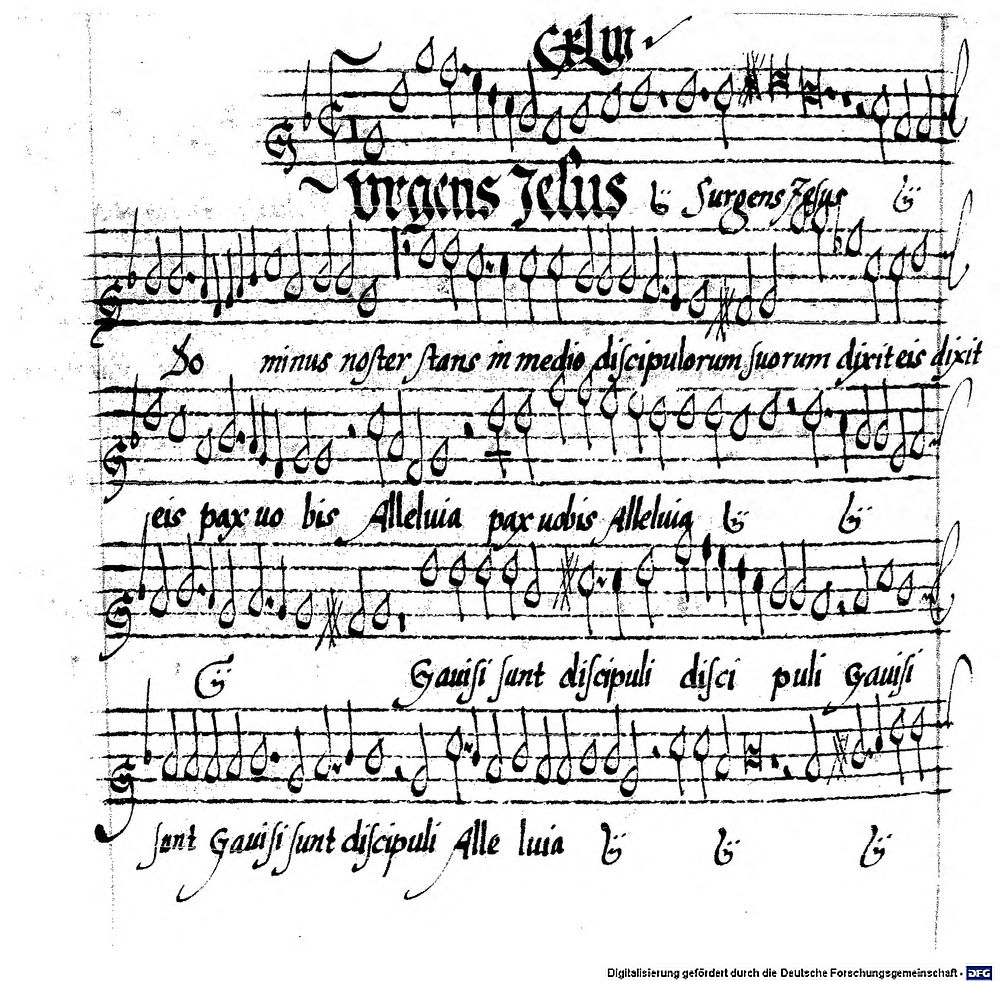 CXLIII.
Surgens Jesus ij Surgens Jesus ij
Do minus noster stans in medio discipulorum suorum dixit eis dixit
eis pax uo bis Alleluia pax uobis Alleluia ij ij
ij Gauisi sunt discipuli disci puli Gauisi
sunt Gauisi sunt discipuli Alle luia ij ij ij
Digitalisierung gefördert durch die Deutsche Forschungsgemeinschaft - DFG